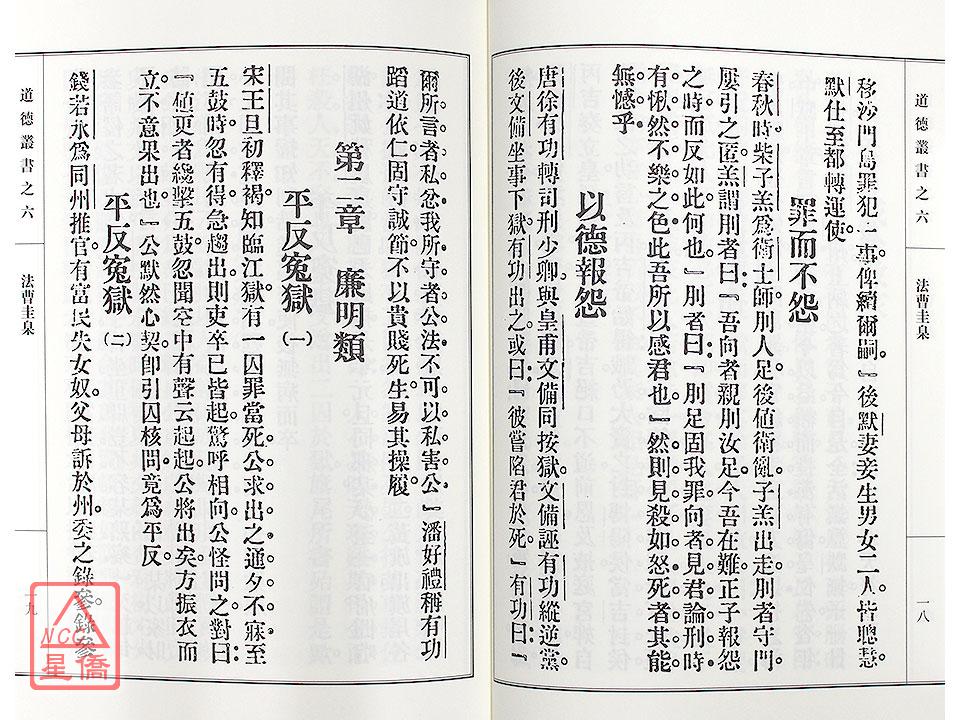 道德叢書之六
法曹圭臬
一八
移沙門島罪犯一事俾續爾嗣』後默妻妾生男女二人皆聰慧。
默仕至都轉運使。
罪而不怨
春秋時柴子羔為衛士師。刖人足。後值衛亂子羔出走刖者守門
屢引之匿羔謂刖者曰『吾向者親刖汝足今吾在難正子報怨
之時而反如此何也』刖者曰『刖足固我罪向者見君論刑時
有愀然不樂之色此吾所以感君也』然則見殺如怒死者其能
無憾乎。
以德報怨
唐徐有功轉司刑少卿與皇甫文備同按獄。文備誣有功縱逆黨。
後文備坐事下獄有功出之或曰『彼嘗陷君於死』有功曰『
爾所言者私忿我所守者公法不可以私害公』潘好禮稱有功
蹈道依仁固守誠節不以貴賤死生易其操履。
第二章　廉明類
平反冤獄（一）
宋王旦初釋褐知臨江獄有一囚罪當死公求出之通夕不寐至
五鼓時忽有得急趨出則吏卒已皆起驚呼相向公怪問之對曰
『値更者纔擊五鼓忽聞空中有聲云起起公將出矣方振衣而
立不意果出也』公默然心契卽引囚核問竟為平反。
平反冤獄（二）
錢若水為同州推官有富民失女奴父母訴於州。委之錄參錄參
道德叢書之六
法曹圭臬
一九
NCC
星僑